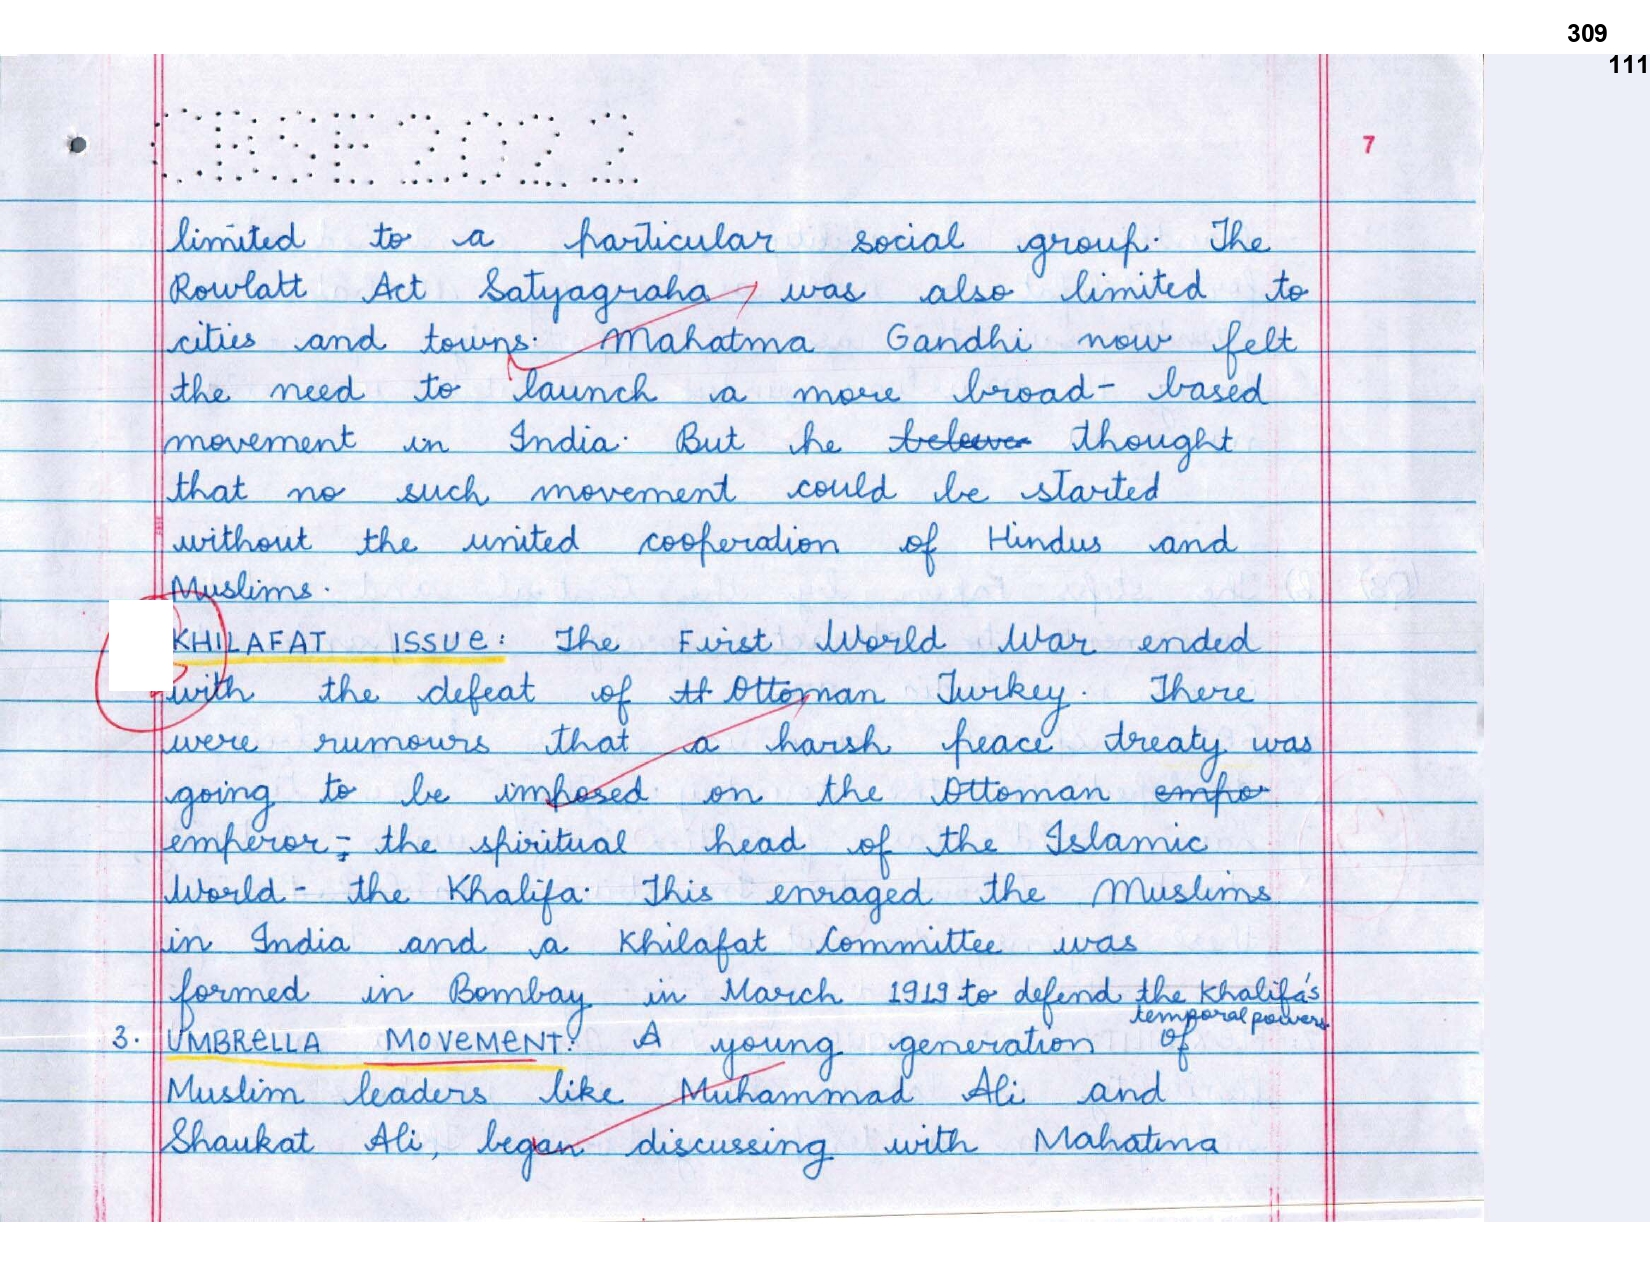 309
111
CBSE2022
7
limited to a particular social group. The
Rowlatt Act Satyagraha was also limited to
cities and towns. Mahatma Gandhi now felt
the need to launch a more broad- based
movement in India. But he thought
that no such movement could be started
without the united cooperation of Hindus and
Muslims.
KHILAFAT ISSUE: The First World War ended
with the defeat of Ottoman Turkey. There
were rumours that a harsh peace treaty was
going to be imposed on the Ottoman empo
emperor - the spiritual head of the Islamic
World - the Khalifa. This enraged the Muslims
in India and a Khilafat Committee was
formed in Bombay in March 1919 to defend the Khalifa's
temporal powers.
3. UMBRELLA MOVEMENT: A young generation of
Muslim leaders like Muhammad Ali and
Shaukat Ali, began discussing with Mahatma